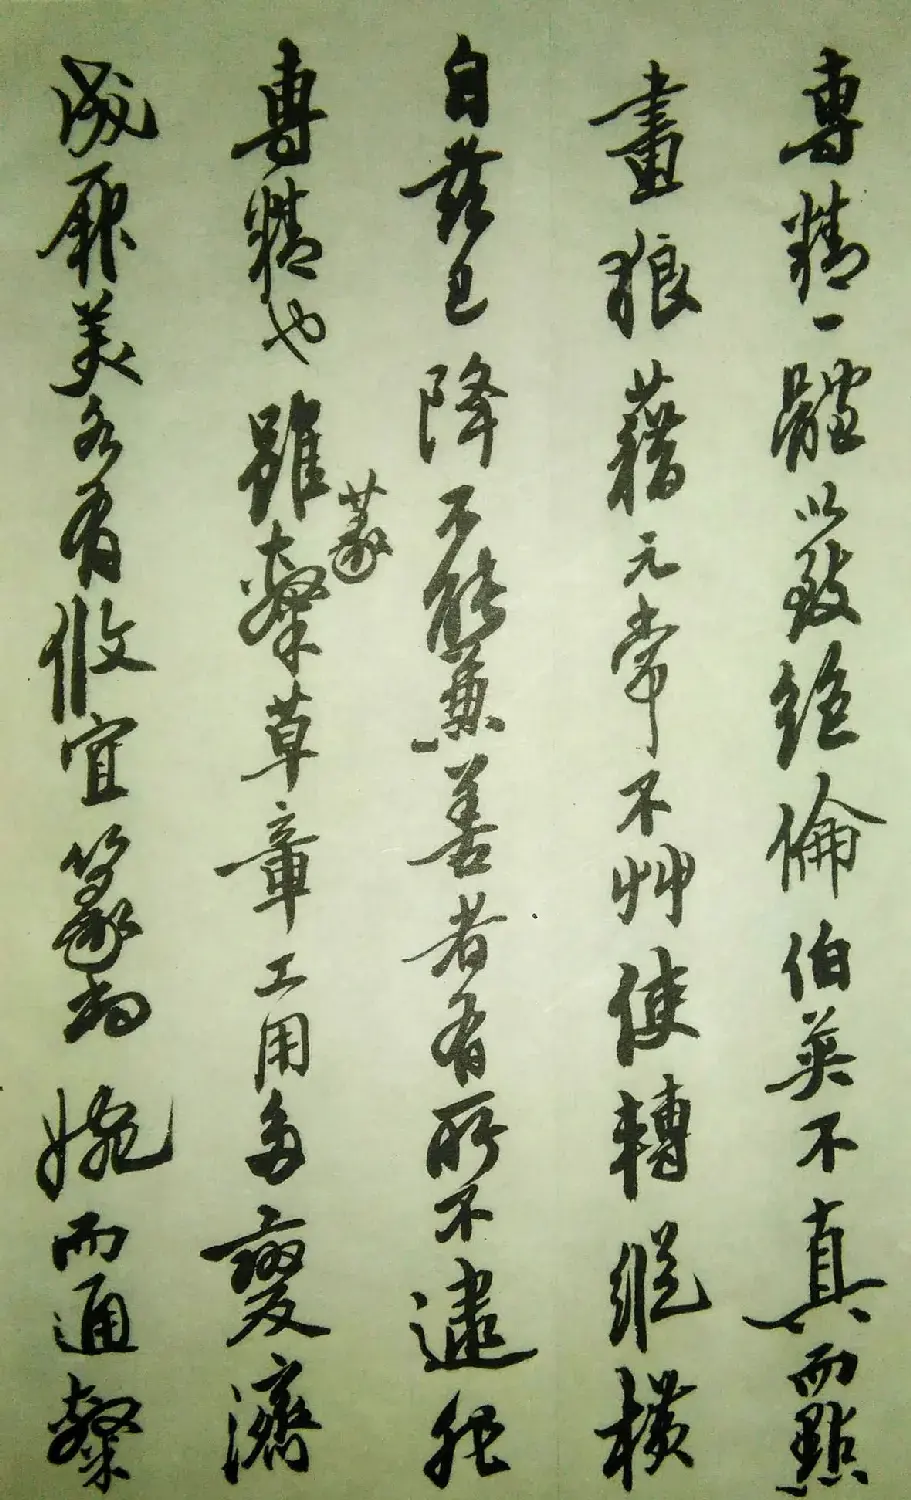 專精一體以致絕倫伯英不真而點
畫狼藉元常不艸使轉縱橫
自茲已降不能兼善者有所不逮非
專精也雖篆隸草章工用多變濟
成厥美各有攸宜篆尚婉而通隸